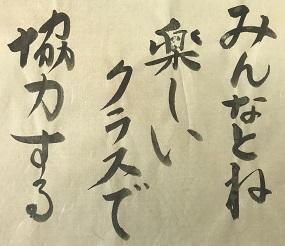 みんなとね
楽しい
クラスで
協力する